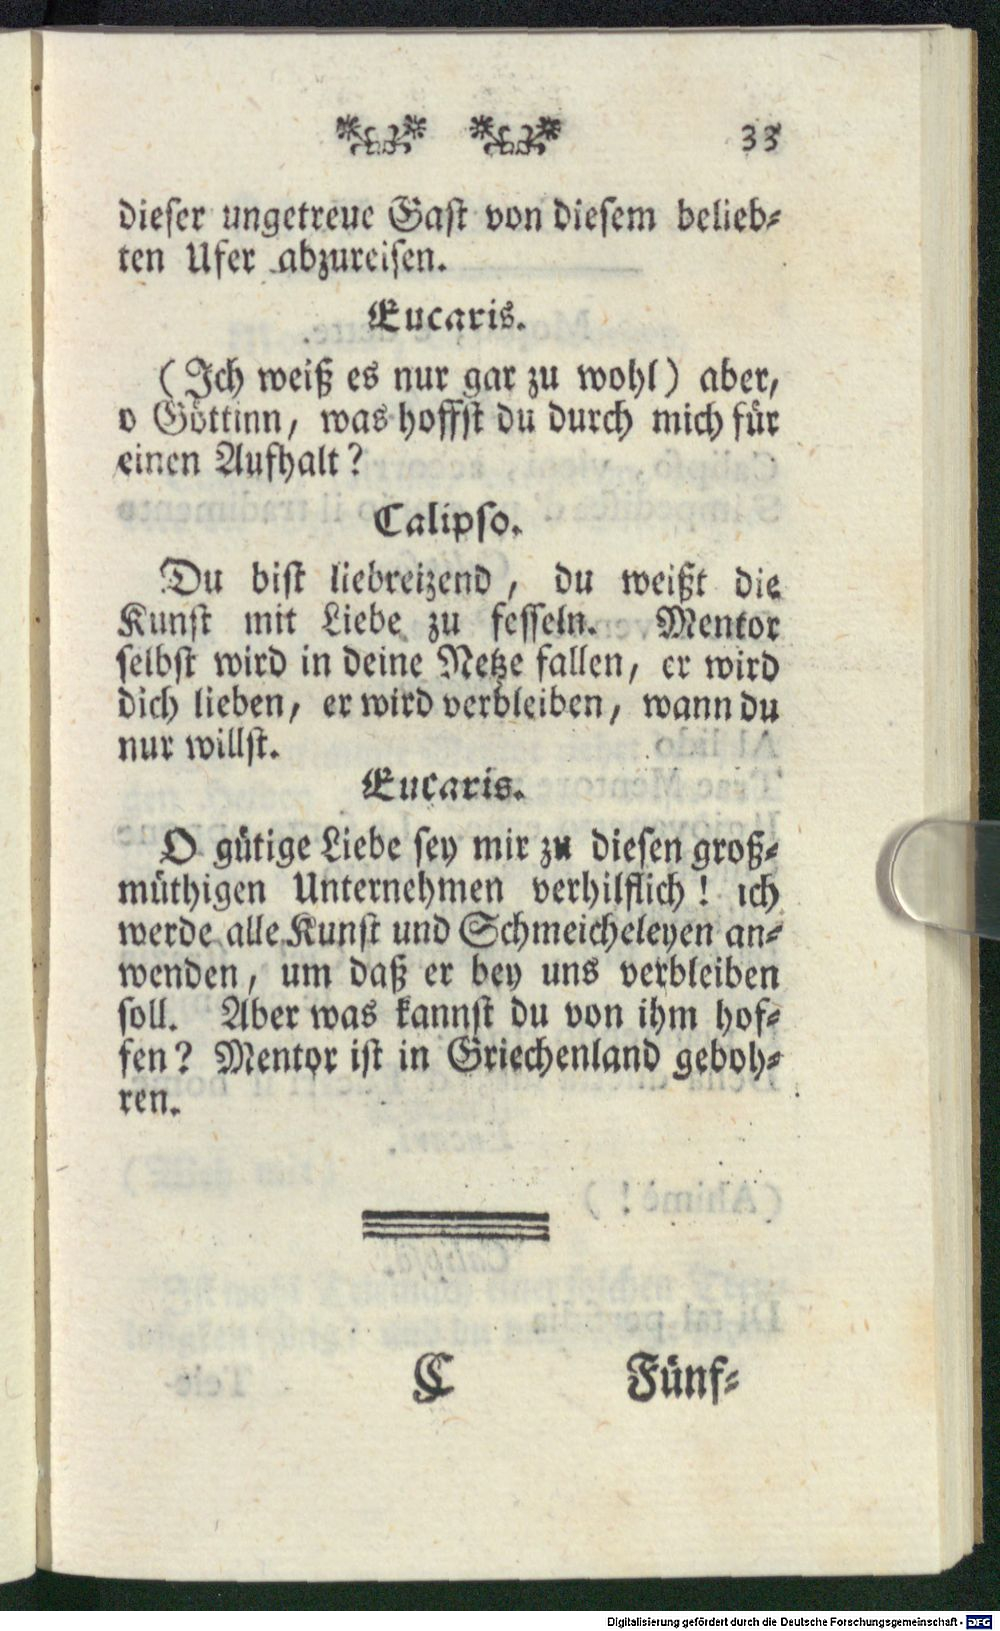 33
dieser ungetreue Gast von diesem belieb-
ten Ufer abzureisen.
Eucaris.
(Ich weiß es nur gar zu wohl) aber,
o Göttinn, was hoffst du durch mich für
einen Aufhalt?
Calipso.
Du bist liebreizend, du weißt die
Kunst mit Liebe zu fesseln. Mentor
selbst wird in deine Netze fallen, er wird
dich lieben, er wird verbleiben, wann du
nur willst.
Eucaris.
O gütige Liebe sey mir zu diesen groß-
müthigen Unternehmen verhilflich! ich
werde alle Kunst und Schmeicheleyen an-
wenden, um daß er bey uns verbleiben
soll. Aber was kannst du von ihm hof-
fen? Mentor ist in Griechenland geboh-
ren.
C Fünf-
Digitalisierung gefördert durch die Deutsche Forschungsgemeinschaft - DFG